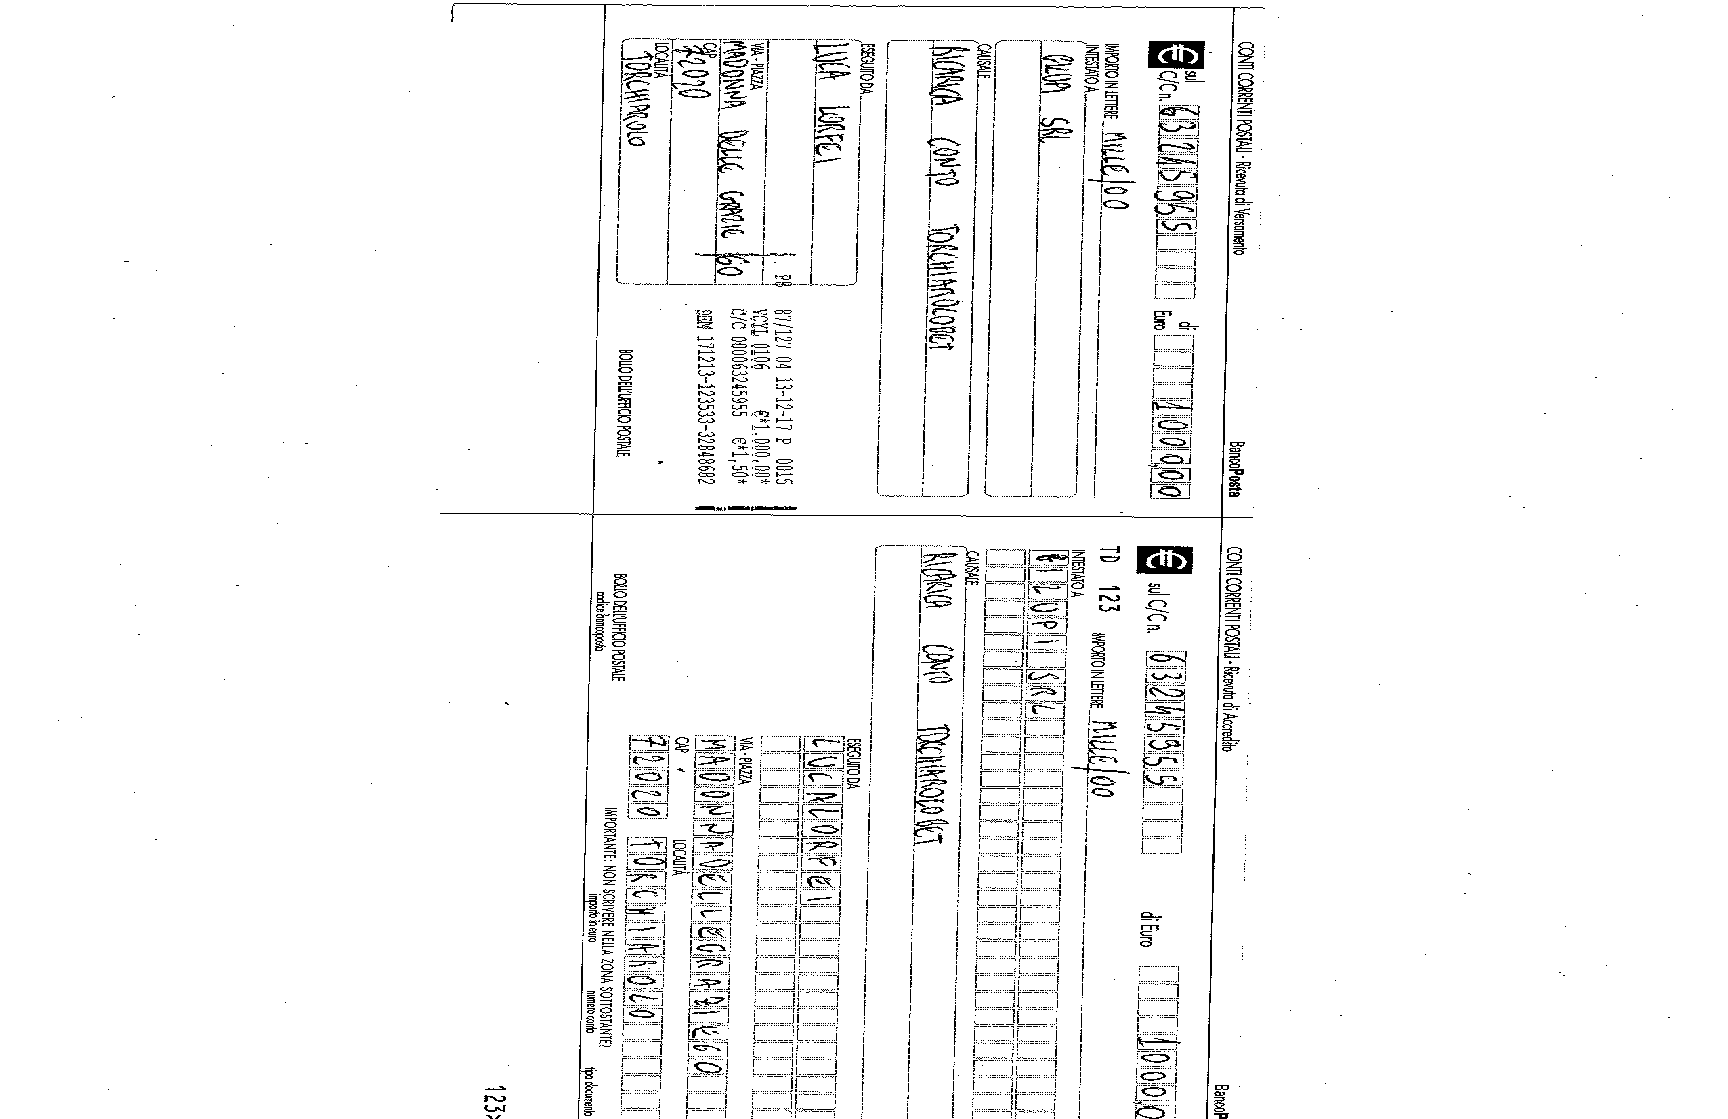 CONTI CORRENTI POSTALI - Ricevuta di Versamento
BancoPosta
€ sul C/C n. 63245955 di Euro 1000,00
IMPORTO IN LETTERE MILLE/00
INTESTATO A
SRL
CAUSALE
RICARICA CONTO TORCHIAROLOBET
ESEGUITO DA
LUCA LORFEI
VIA - PIAZZA
MADONNA DELLE GRAZIE 60
CAP
72020
LOCALITÀ
TORCHIAROLO
87/127 04 13-12-17 P 0015
VCYL 0106 €*1.000,00*
C/C 000063245955 €*1,50*
BOLLO DELL'UFFICIO POSTALE
CONTI CORRENTI POSTALI - Ricevuta di Accredito
BancoP
€ sul C/C n. 63245955 di Euro 1000,0
TD 123 IMPORTO IN LETTERE MILLE/00
INTESTATO A
SRL
CAUSALE
RICARICA CONTO TORCHIAROLOBET
ESEGUITO DA
LUCA LORFEI
VIA - PIAZZA
MADONNA DELLE GRAZIE 60
CAP LOCALITÀ
72020 TORCHIAROLO
BOLLO DELL'UFFICIO POSTALE
codice bancoposta
IMPORTANTE: NON SCRIVERE NELLA ZONA SOTTOSTANTE!
importo in euro numero conto tipo documento
123>